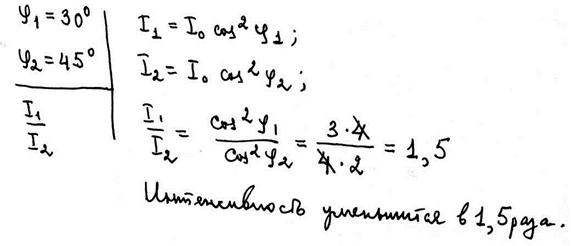 φ₁ = 30°
φ₂ = 45°
I₁/I₂
I₁ = I₀ cos² φ₁ ;
I₂ = I₀ cos² φ₂ ;
I₁/I₂ = cos² φ₁ / cos² φ₂ = 3 · 4 / 4 · 2 = 1,5
Интенсивность уменьшится в 1,5 раза.